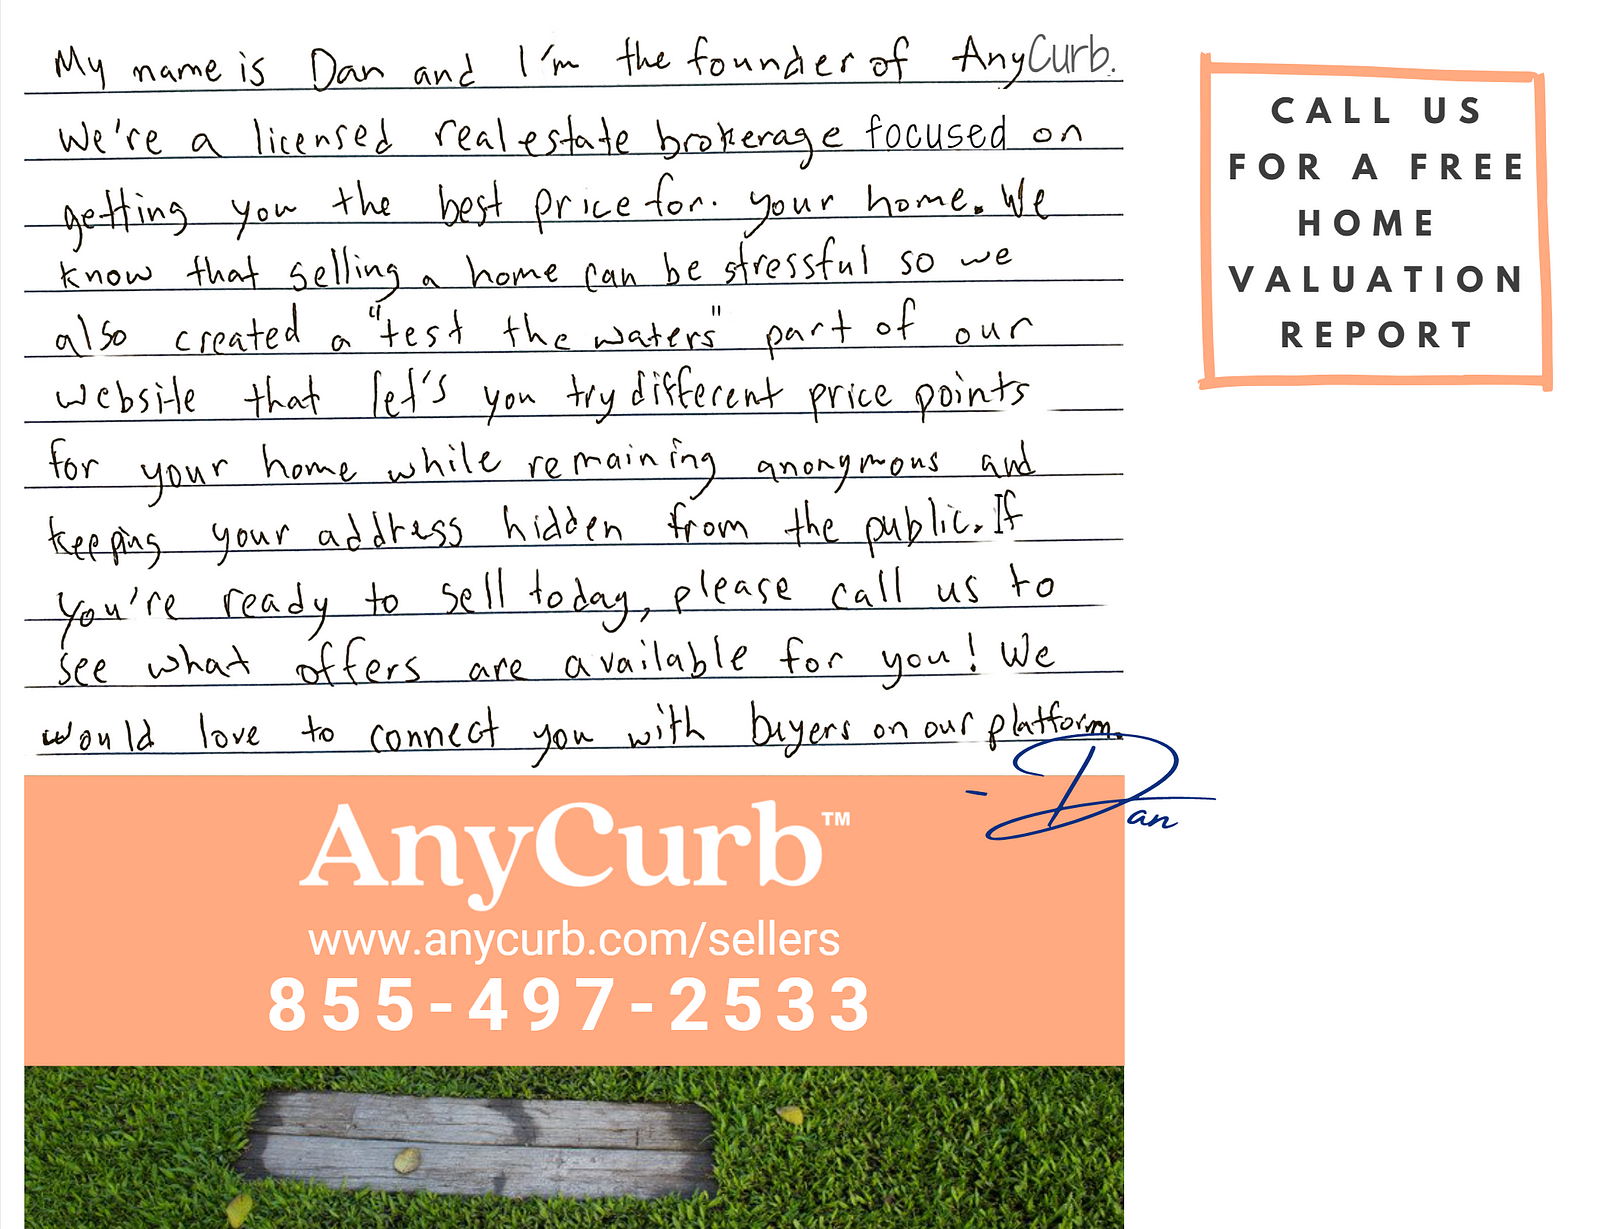 My name is Dan and I'm the founder of AnyCurb.
We're a licensed real estate brokerage focused on
getting you the best price for. your home. We
know that selling a home can be stressful so we
also created a "test the waters" part of our
website that let's you try different price points
for your home while remaining anonymous and
keeping your address hidden from the public. If
you're ready to sell today, please call us to
see what offers are available for you! We
would love to connect you with buyers on our platform.
- Dan
CALL US
FOR A FREE
HOME
VALUATION
REPORT
AnyCurb™
www.anycurb.com/sellers
855-497-2533